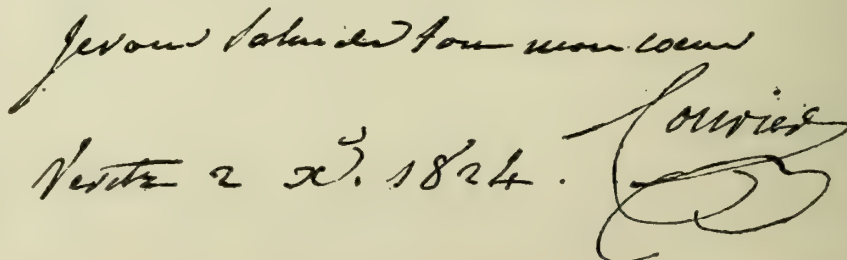 Je vous salue de tout mon coeur
Veretz 2 xb. 1824. Courier